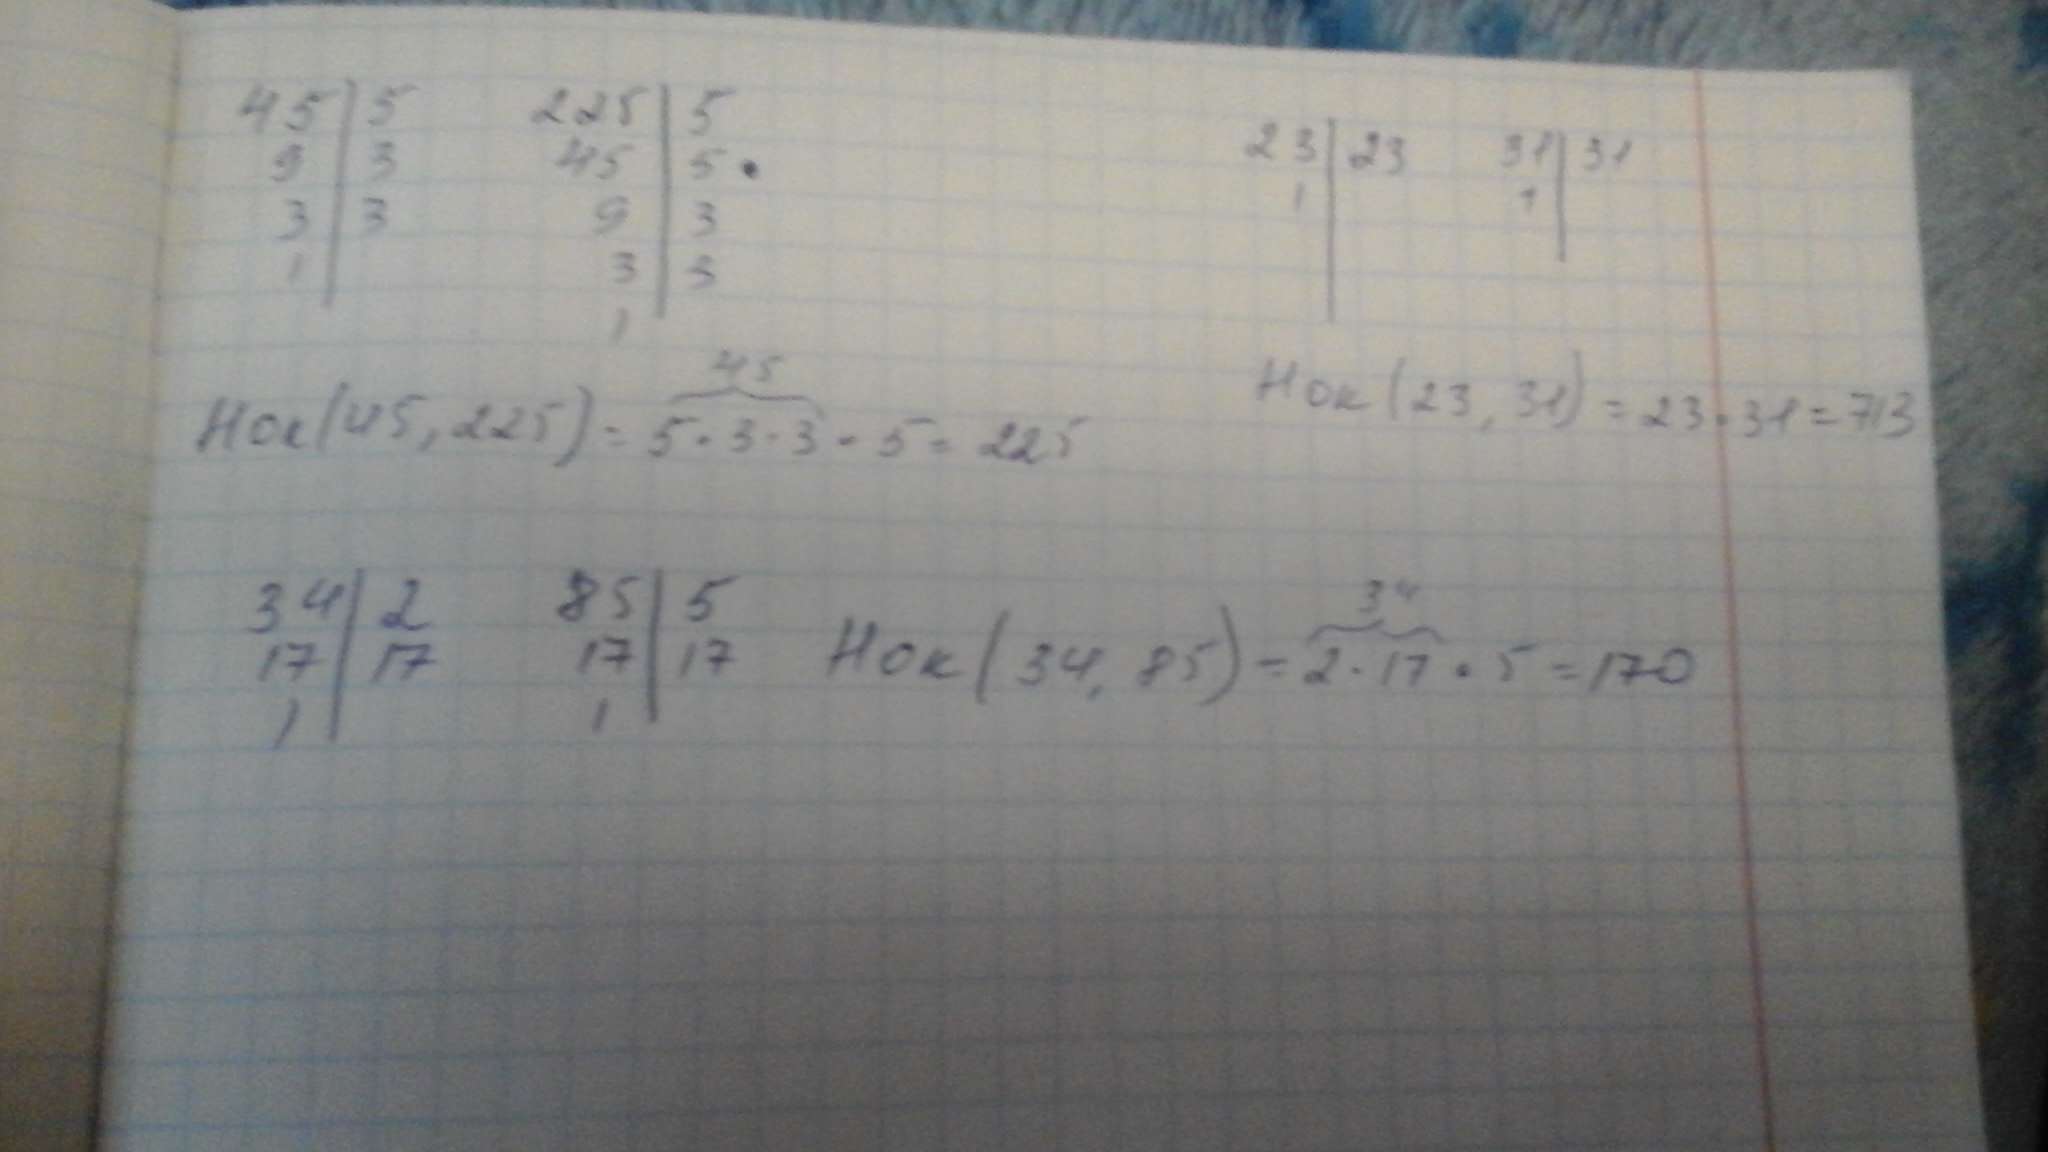 45 | 5 225 | 5
9 | 3 45 | 5 •
3 | 3 9 | 3
1 | 3 | 3
1
23 | 23 31 | 31
1 | 1 |
45
Нок(45, 225) = 5·3·3·5 = 225
Нок(23, 31) = 23·31 = 713
34 | 2 85 | 5
17 | 17 17 | 17
1 | 1 |
34
Нок(34, 85) = 2·17·5 = 170